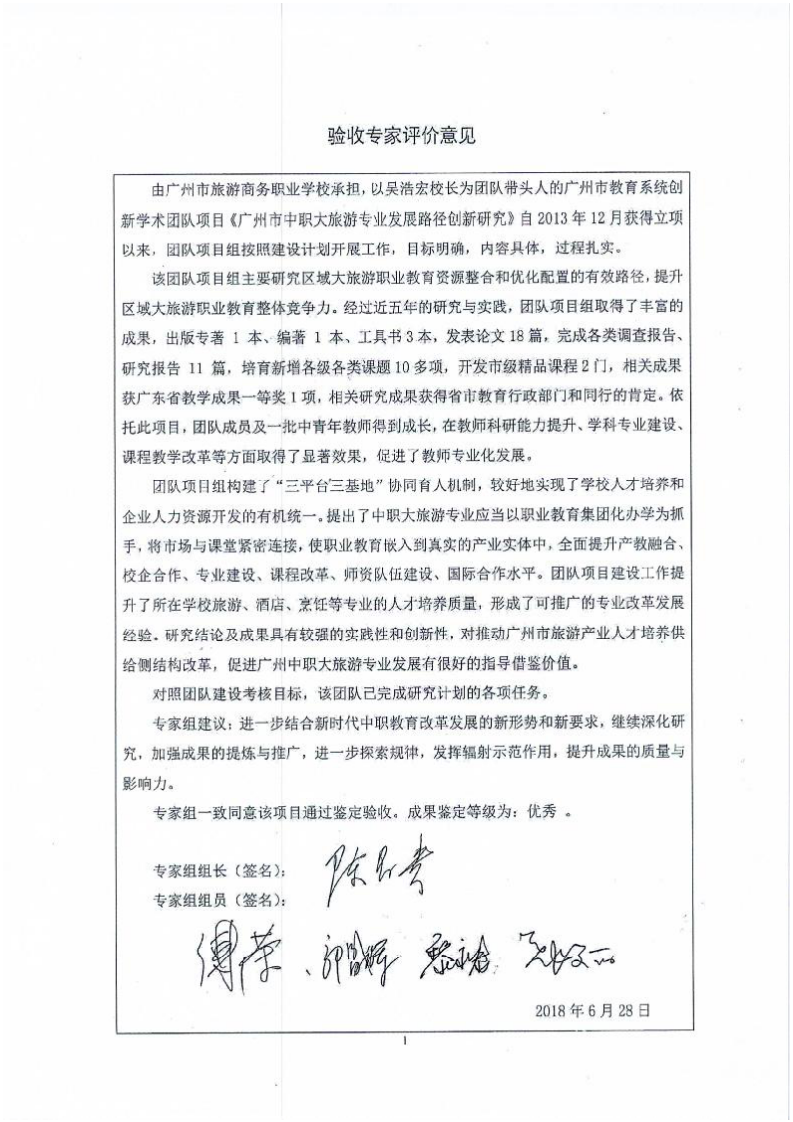 验收专家评价意见
由广州市旅游商务职业学校承担，以吴浩宏校长为团队带头人的广州市教育系统创
新学术团队项目《广州市中职大旅游专业发展路径创新研究》自 2013 年 12 月获得立项
以来，团队项目组按照建设计划开展工作，目标明确，内容具体，过程扎实。
该团队项目组主要研究区域大旅游职业教育资源整合和优化配置的有效路径，提升
区域大旅游职业教育整体竞争力。经过近五年的研究与实践，团队项目组取得了丰富的
成果，出版专著 1 本、编著 1 本、工具书 3 本，发表论文 18 篇，完成各类调查报告、
研究报告 11 篇，培育新增各级各类课题 10 多项，开发市级精品课程 2 门，相关成果
获广东省教学成果一等奖 1 项，相关研究成果获得省市教育行政部门和同行的肯定。依
托此项目，团队成员及一批中青年教师得到成长，在教师科研能力提升、学科专业建设、
课程教学改革等方面取得了显著效果，促进了教师专业化发展。
团队项目组构建了“三平台三基地”协同育人机制，较好地实现了学校人才培养和
企业人力资源开发的有机统一。提出了中职大旅游专业应当以职业教育集团化办学为抓
手，将市场与课堂紧密连接，使职业教育嵌入到真实的产业实体中，全面提升产教融合、
校企合作、专业建设、课程改革、师资队伍建设、国际合作水平。团队项目建设工作提
升了所在学校旅游、酒店、烹饪等专业的人才培养质量，形成了可推广的专业改革发展
经验。研究结论及成果具有较强的实践性和创新性，对推动广州市旅游产业人才培养供
给侧结构改革，促进广州中职大旅游专业发展有很好的指导借鉴价值。
对照团队建设考核目标，该团队已完成研究计划的各项任务。
专家组建议：进一步结合新时代中职教育改革发展的新形势和新要求，继续深化研
究，加强成果的提炼与推广，进一步探索规律，发挥辐射示范作用，提升成果的质量与
影响力。
专家组一致同意该项目通过鉴定验收。成果鉴定等级为：优秀 。
专家组组长（签名）：
专家组组员（签名）：
傅荣、
2018 年 6 月 28 日
1